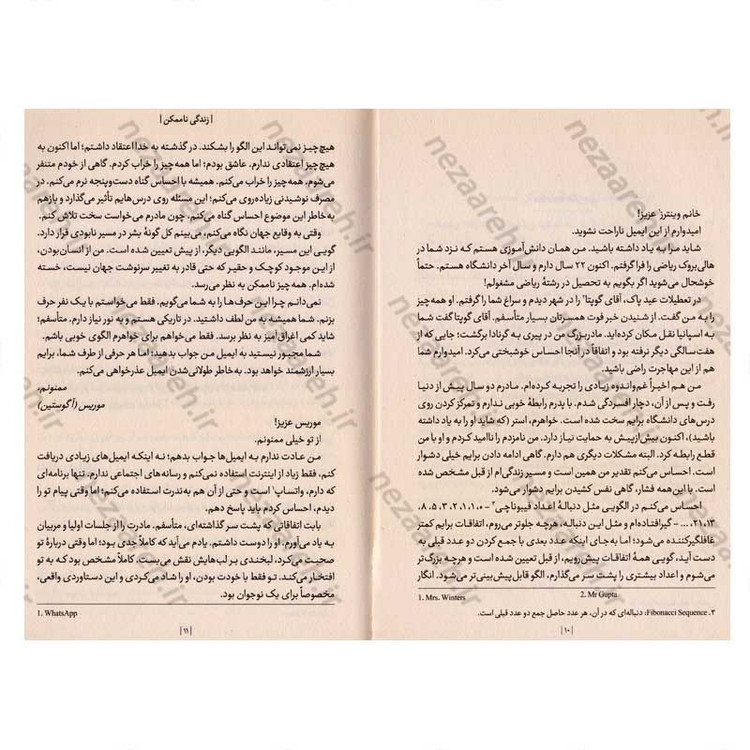 خانم وینترز¹ عزیز!
امیدوارم از این ایمیل ناراحت نشوید.
شاید مرا به یاد داشته باشید. من همان دانش‌آموزی هستم که نزد شما در
هالی‌بروک ریاضی را فرا گرفتم. اکنون ۲۲ سال دارم و سال آخر دانشگاه هستم. حتماً
خوشحال می‌شوید اگر بگویم به تحصیل در رشتهٔ ریاضی مشغولم!
در تعطیلات عید پاک، آقای گوپتا² را در شهر دیدم و سراغ شما را گرفتم. او همه‌چیز
را به من گفت. از شنیدن خبر فوت همسرتان بسیار متأسفم. آقای گوپتا گفت شما
به اسپانیا نقل مکان کرده‌اید. مادربزرگ من در پیری به گرنادا برگشت؛ جایی که از
هفت‌سالگی دیگر نرفته بود و اتفاقاً در آنجا احساس خوشبختی می‌کرد. امیدوارم شما
هم از این مهاجرت راضی باشید.
من هم اخیراً غم‌واندوه زیادی را تجربه کرده‌ام. مادرم دو سال پیش از دنیا
رفت و پس از آن، دچار افسردگی شدم. با پدرم رابطهٔ خوبی ندارم و تمرکز کردن روی
درس‌های دانشگاه برایم سخت شده است. خواهرم، استر (که شاید او را به یاد داشته
باشید)، اکنون بیش‌ازپیش به حمایت نیاز دارد. من نامزدم را ناامید کردم و او با من
قطع رابطه کرد. البته مشکلات دیگری هم دارم. گاهی ادامه دادن برایم خیلی دشوار
است. احساس می‌کنم تقدیر من همین است و مسیر زندگی‌ام از قبل مشخص شده
است. با این‌همه فشار، گاهی نفس کشیدن برایم دشوار می‌شود.
احساس می‌کنم در الگویی مثل دنبالهٔ اعداد فیبوناچی³ - ۰، ۱، ۱، ۲، ۳، ۵، ۸،
۱۳، ۲۱، ... - گیر افتاده‌ام و مثل این دنباله، هرچه جلوتر می‌روم، اتفاقات برایم کمتر
غافلگیرکننده می‌شود؛ اما به جای اینکه عدد بعدی با جمع کردن دو عدد قبلی به
دست آید، گویی همهٔ اتفاقات پیش‌رویم، از قبل تعیین شده است و هرچه بزرگ‌تر
می‌شوم و اعداد بیشتری را پشت سر می‌گذارم، الگو قابل‌پیش‌بینی‌تر می‌شود. انگار
1. Mrs. Winters
2. Mr Gupta
۳. Fibonacci Sequence: دنباله‌ای که در آن، هر عدد حاصل جمع دو عدد قبلی است.
| ۱۰ |
| زندگی ناممکن |
هیچ‌چیز نمی‌تواند این الگو را بشکند. در گذشته به خدا اعتقاد داشتم؛ اما اکنون به
هیچ‌چیز اعتقادی ندارم. عاشق بودم؛ اما همه‌چیز را خراب کردم. گاهی از خودم متنفر
می‌شوم. همه‌چیز را خراب می‌کنم. همیشه با احساس گناه دست‌وپنجه نرم می‌کنم. در
مصرف نوشیدنی زیاده‌روی می‌کنم؛ این مسئله روی درس‌هایم تأثیر می‌گذارد و بازهم
به خاطر این موضوع احساس گناه می‌کنم. چون مادرم می‌خواست سخت تلاش کنم.
وقتی به وقایع جهان نگاه می‌کنم، می‌بینم کل گونهٔ بشر در مسیر نابودی قرار دارد.
گویی این مسیر، مانند الگویی دیگر، از پیش تعیین شده است. من از انسان‌بودن،
از این موجود کوچک و حقیر که حتی قادر به تغییر سرنوشت جهان نیست، خسته
شده‌ام. همه‌چیز ناممکن به نظر می‌رسد.
نمی‌دانم چرا این حرف‌ها را به شما می‌گویم. فقط می‌خواستم با یک نفر حرف
بزنم. شما همیشه به من لطف داشتید. در تاریکی هستم و به نور نیاز دارم. متأسفم؛
شاید کمی اغراق‌آمیز به نظر برسد. فقط می‌خواهم برای خواهرم الگوی خوبی باشم.
شما مجبور نیستید به ایمیل من جواب بدهید؛ اما هر حرفی از طرف شما، برایم
بسیار ارزشمند خواهد بود. به‌خاطر طولانی‌شدن ایمیل عذرخواهی می‌کنم.
ممنونم،
موریس (آگوستین)
موریس عزیز!
از تو خیلی ممنونم.
من عادت ندارم به ایمیل‌ها جواب بدهم؛ نه اینکه ایمیل‌های زیادی دریافت
کنم، فقط زیاد از اینترنت استفاده نمی‌کنم و رسانه‌های اجتماعی ندارم. تنها برنامه‌ای
که دارم، واتساپ¹ است و حتی از آن هم به‌ندرت استفاده می‌کنم؛ اما وقتی پیام تو را
دیدم، احساس کردم باید پاسخ دهم.
بابت اتفاقاتی که پشت سر گذاشته‌ای، متأسفم. مادرت را از جلسات اولیا و مربیان
به یاد می‌آورم. او را دوست داشتم. یادم می‌آید که کاملاً جدی بود؛ اما وقتی دربارهٔ تو
صحبت می‌کرد، لبخندی بر لب‌هایش نقش می‌بست. کاملاً مشخص بود که به تو
افتخار می‌کند. تو فقط با خودت بودن، او را شاد می‌کردی و این دستاوردی واقعی،
مخصوصاً برای یک نوجوان بود.
1. WhatsApp
| ۱۱ |
nezaareh.ir